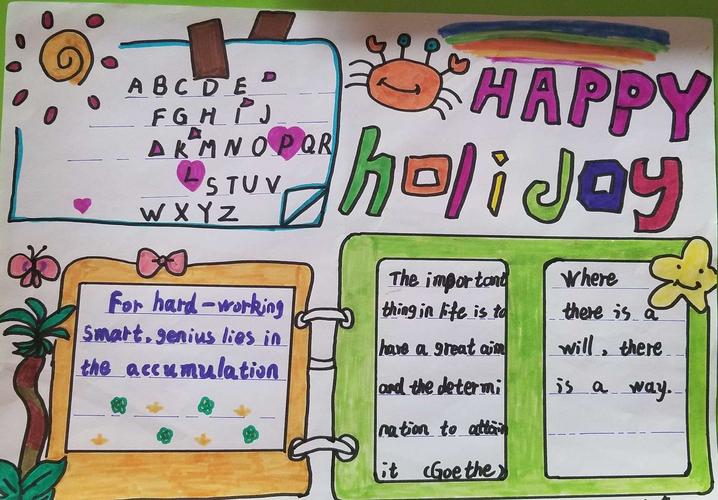 A B C D E
F G H I J
K M N O P Q R
L S T U V
W X Y Z
HAPPY
holiday
For hard-working
smart, genius lies in
the accumulation
The important
thing in life is to
have a great aim
and the determi
nation to attain
it (Goethe)
Where
there is a
will, there
is a way.